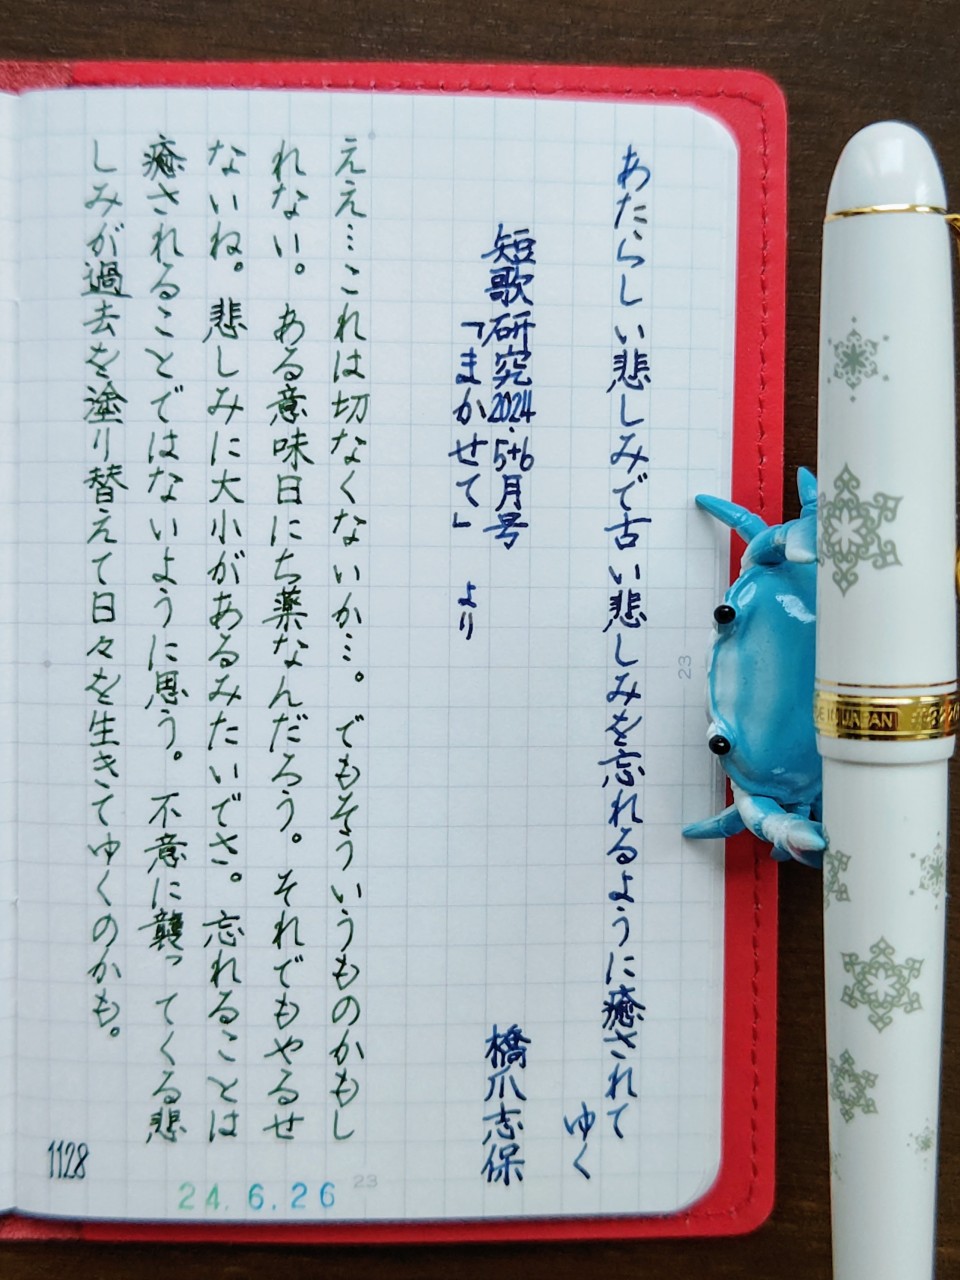 あたらしい悲しみで古い悲しみを忘れるように癒されて
ゆく
短歌研究2024.5+6月号
「まかせて」 より
橋爪志保
ええ…これは切なくないか…。でもそういうものかもし
れない。ある意味日にち薬なんだろう。それでもやるせ
ないね。悲しみに大小があるみたいでさ。忘れることは
癒されることではないように思う。不意に襲ってくる悲
しみが過去を塗り替えて日々を生きてゆくのかも。
1128
24.6.26
23
23
JAPAN